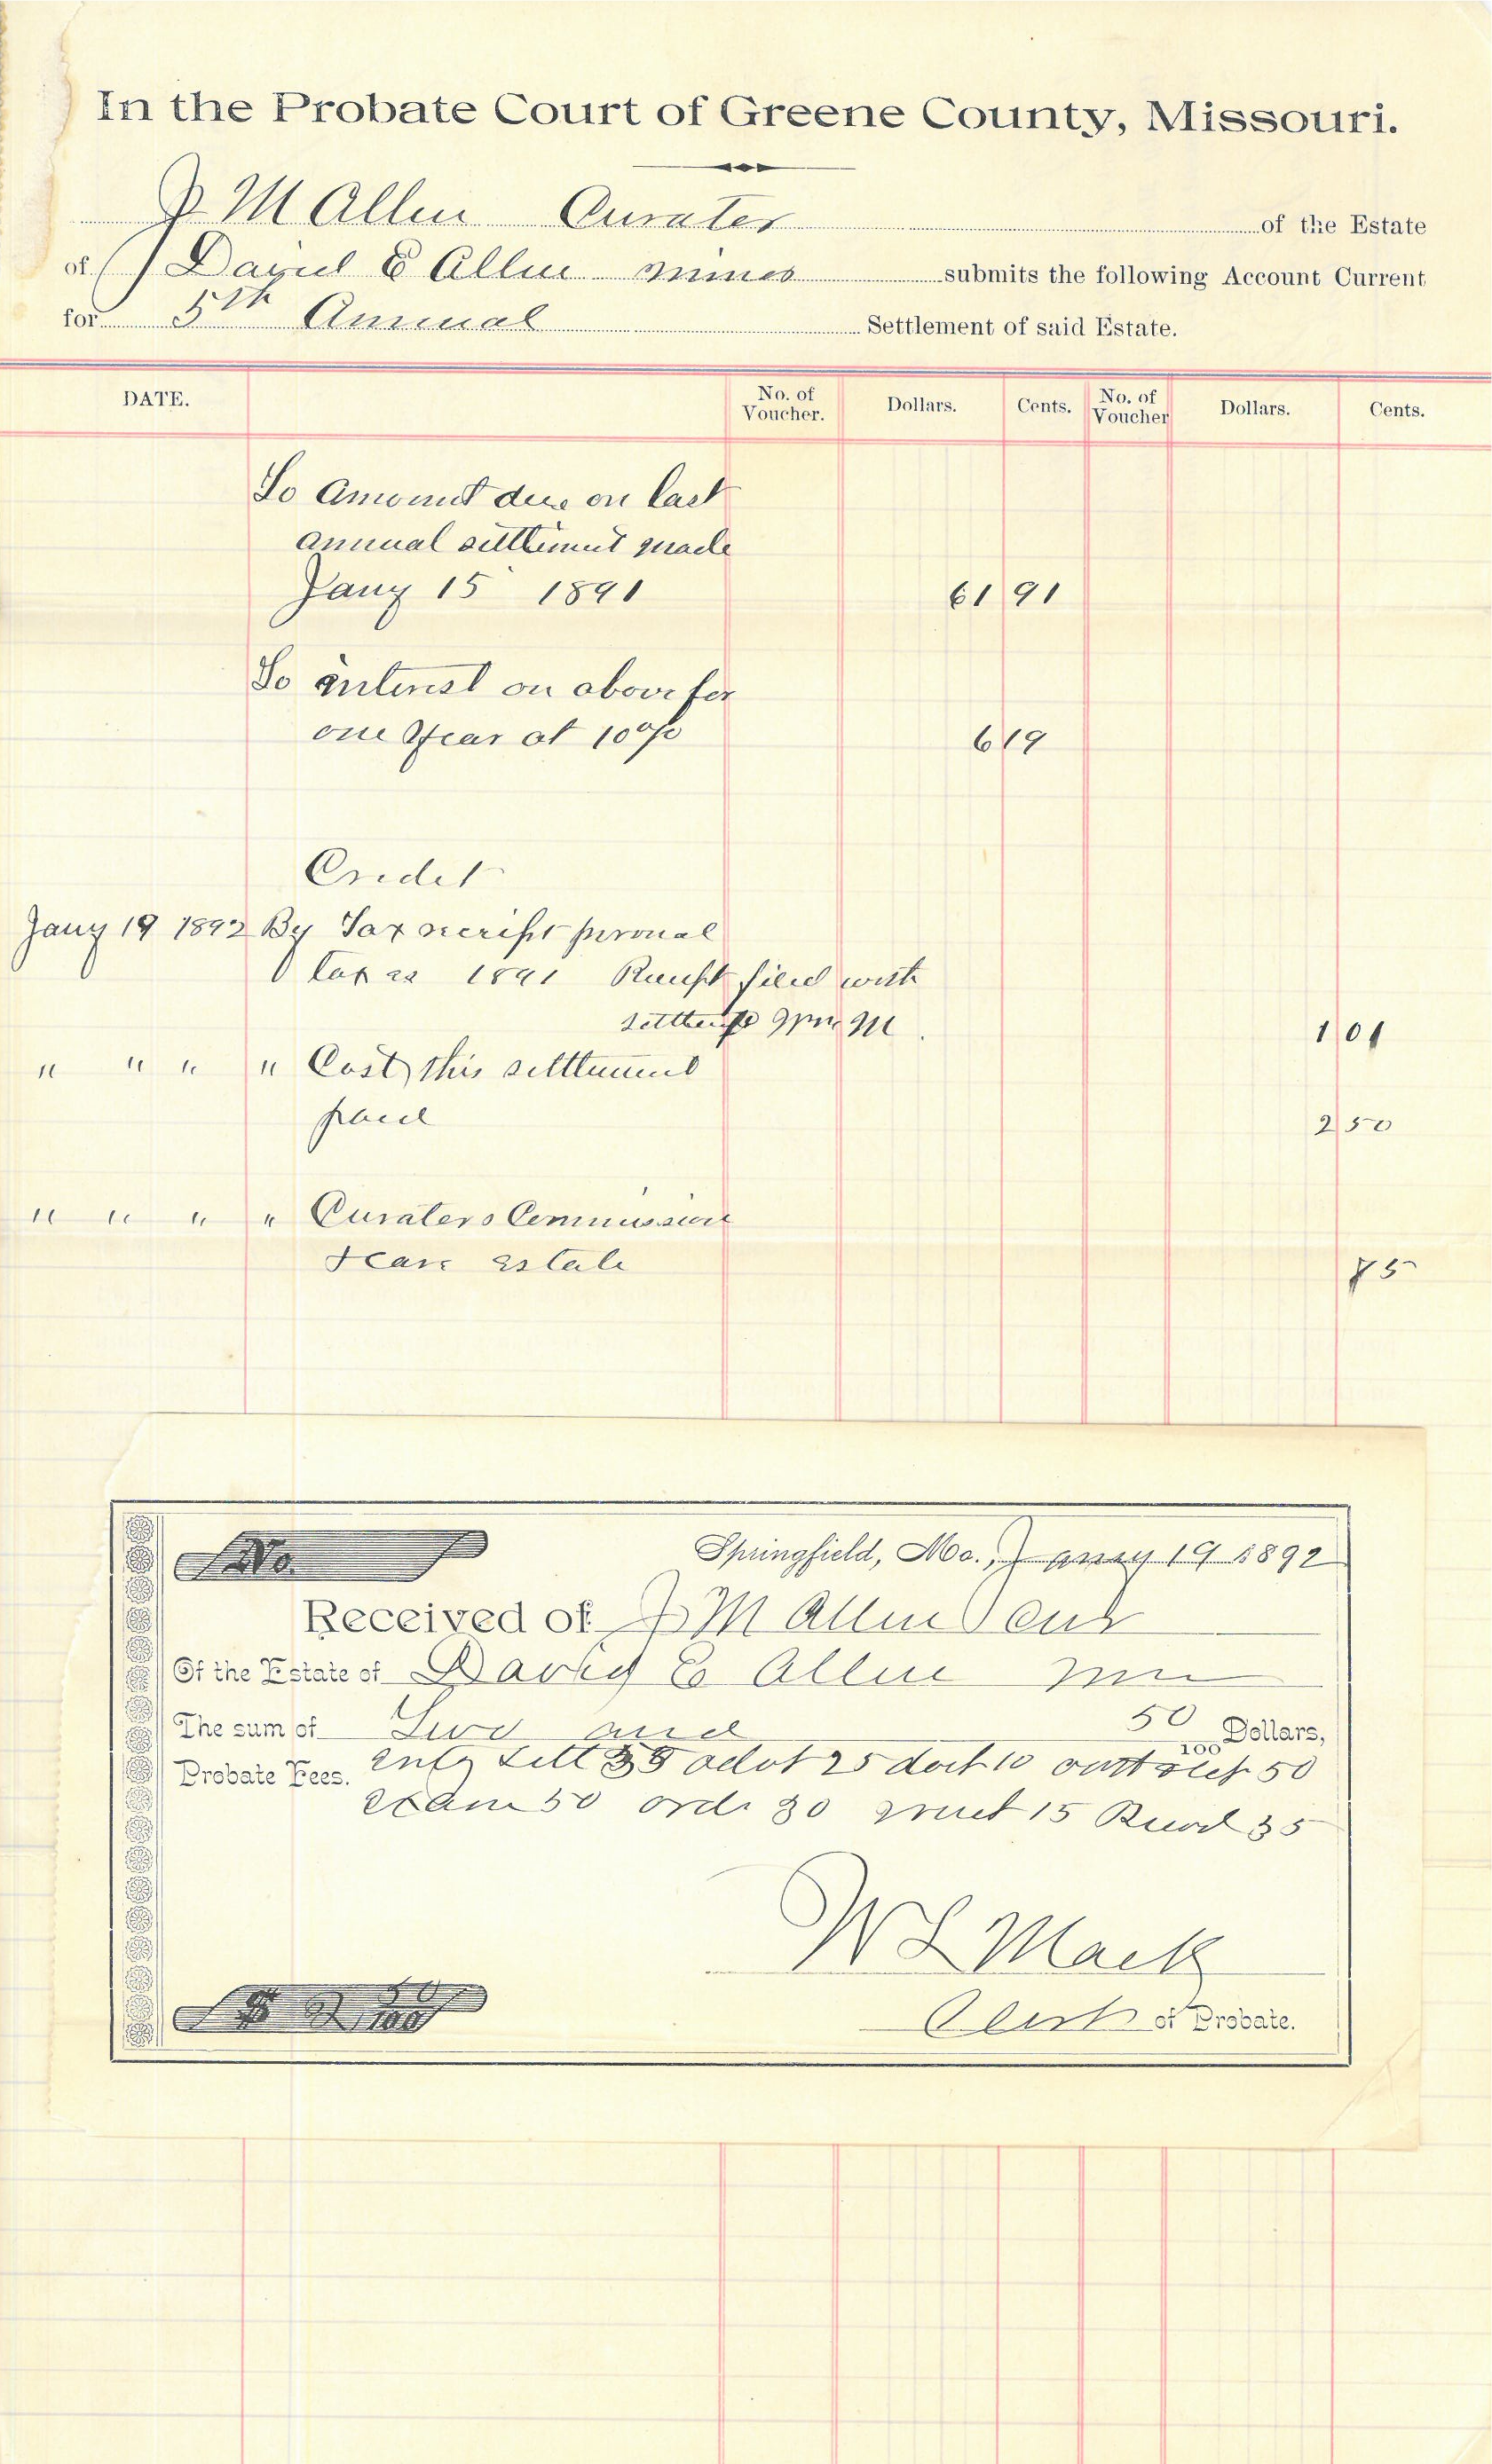 In the Probate Court of Greene County, Missouri.
J M Allen Curator of the Estate
of David E Allen minor submits the following Account Current
for 5th Annual Settlement of said Estate.
DATE. No. of Voucher. Dollars. Cents. No. of Voucher Dollars. Cents.
To Amount due on last
annual settlement made
Jany 15 1891 61 91
To interest on above for
one Year at 10% 6 19
Credit
Jany 19 1892 By Tax receipt personal
taxes 1891 Receipt filed with
1 01
" " " " Cost this settlement
paid 2 50
" " " " Curators Commission
estate 85
No. Springfield, Mo., Jany 19 1892
Received of J M Allen Cur
Of the Estate of David E Allen min
The sum of Two and 50/100 Dollars,
Probate Fees. sett 35 25 dock 10 50
exam 50 ord 30 15 Record 35
W L Mack
$ 2 50/100 Clerk of Probate.